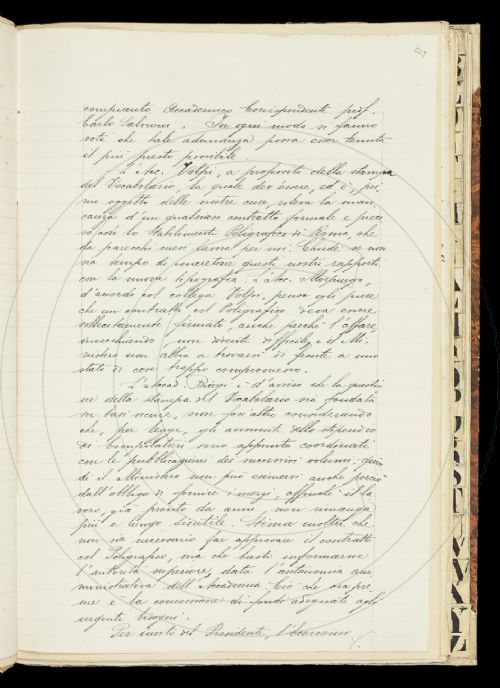 compianto Accademico Corrispondente prof.
Carlo Salvioni. In ogni modo si fanno
voti che tale adunanza possa esser tenuta
il più presto possibile.
L'Acc. Volpi, a proposito della stampa
del Vocabolario, la quale dev'essere, ed è, pri-
mo oggetto delle nostre cure, rileva la man-
canza d'un qualsiasi contratto formale e preci-
so con lo Stabilimento Poligrafico di Roma, che
da parecchi mesi lavora per noi. Chiede se non
sia tempo di concretare questi nostri rapporti
con la nuova tipografia. L'Acc.
d'accordo col collega Volpi, pensa egli pure
che un contratto col Poligrafico deva essere
sollecitamente firmato, anche perché l'affare,
invecchiando, non diventi difficile, e il Mi-
nistero non abbia a trovarsi di fronte a uno
stato di cose troppo compromesso.
L'Accad. è d'avviso che la questio-
ne della stampa del Vocabolario sia fondata
su basi sicure, non foss'altro considerando
che, per legge, gli aumenti dello stipendio
dei Compilatori sono appunto coordinati
con le pubblicazioni dei successivi volumi: quin-
di il Ministero non può esimersi anche perciò
dall'obbligo di fornire i mezzi, affinché il la-
voro, già pronto da anni, non rimanga
più a lungo inutile. Stima inoltre che
non sia necessario far approvare il contratto
col Poligrafico, ma che basti informarne
l'autorità superiore, data l'autonomia am-
ministrativa dell'Accademia. Ciò che ora pre-
me è la concessione di fondi adeguati agli
urgenti bisogni.
Per invito del Presidente, l'Economo